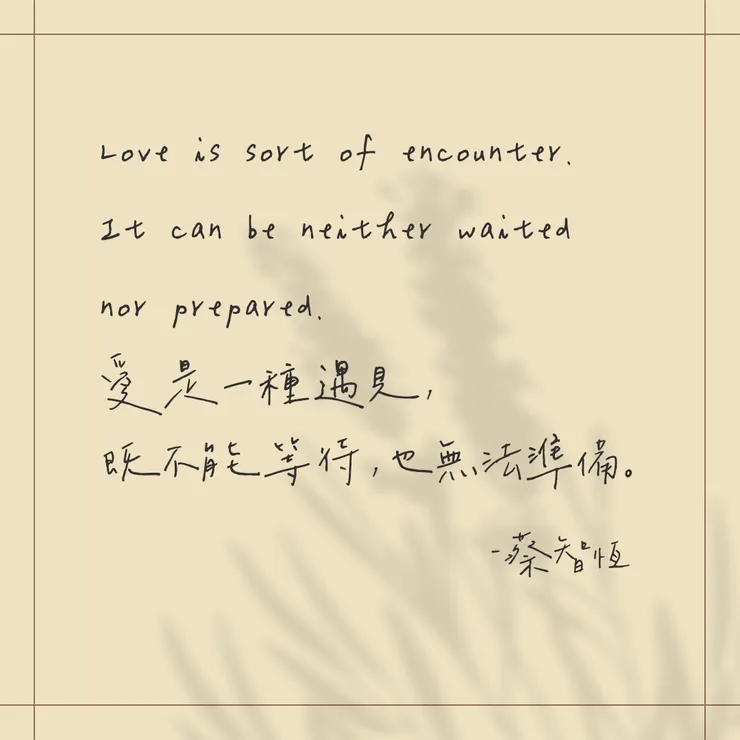 Love is sort of encounter.
It can be neither waited
nor prepared.
愛是一種遇見,
既不能等待,也無法準備。
-蔡智恆